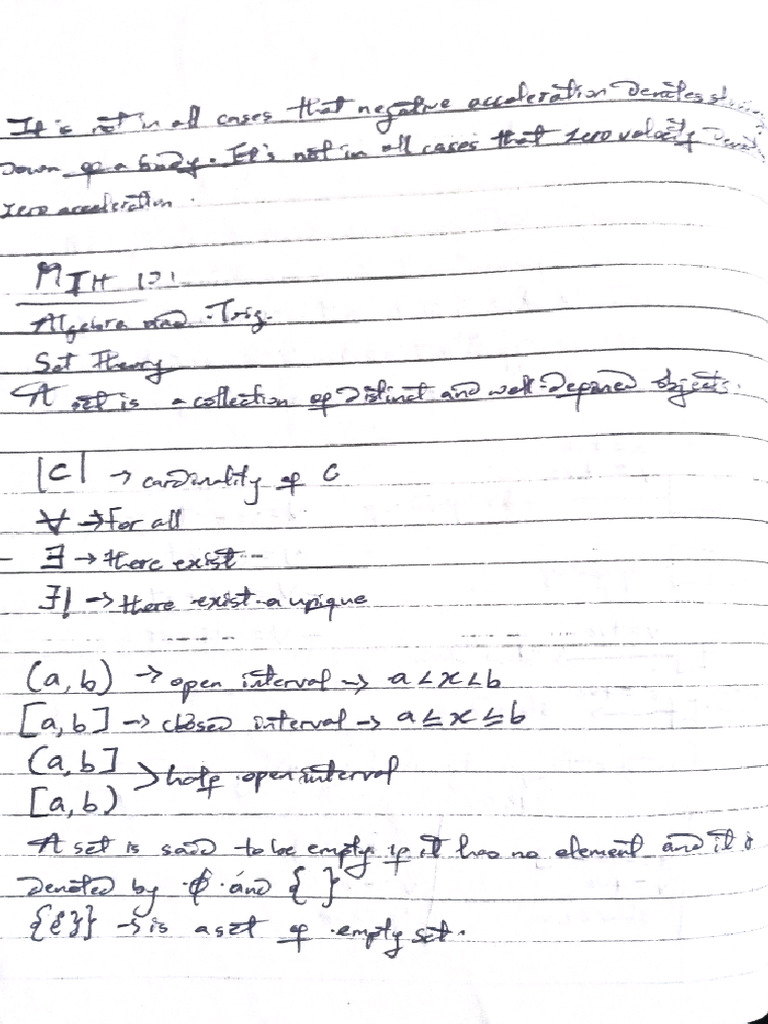 It's not in all cases that negative acceleration Denotes
Down of a body. It's not in all cases that zero velocity
zero acceleration.
MTH 101
Algebra and Trig.
Set Theory
A set is a collection of distinct and well-defined objects.
|C| → cardinality of C
∀ → For all
∃ → there exist
∃! → there exist a unique
(a, b) → open interval → a < x < b
[a, b] → closed interval → a ≤ x ≤ b
(a, b]
> half open interval
[a, b)
A set is said to be empty if it has no element and it is
denoted by ϕ and { }
{{}} → is a set of empty set.